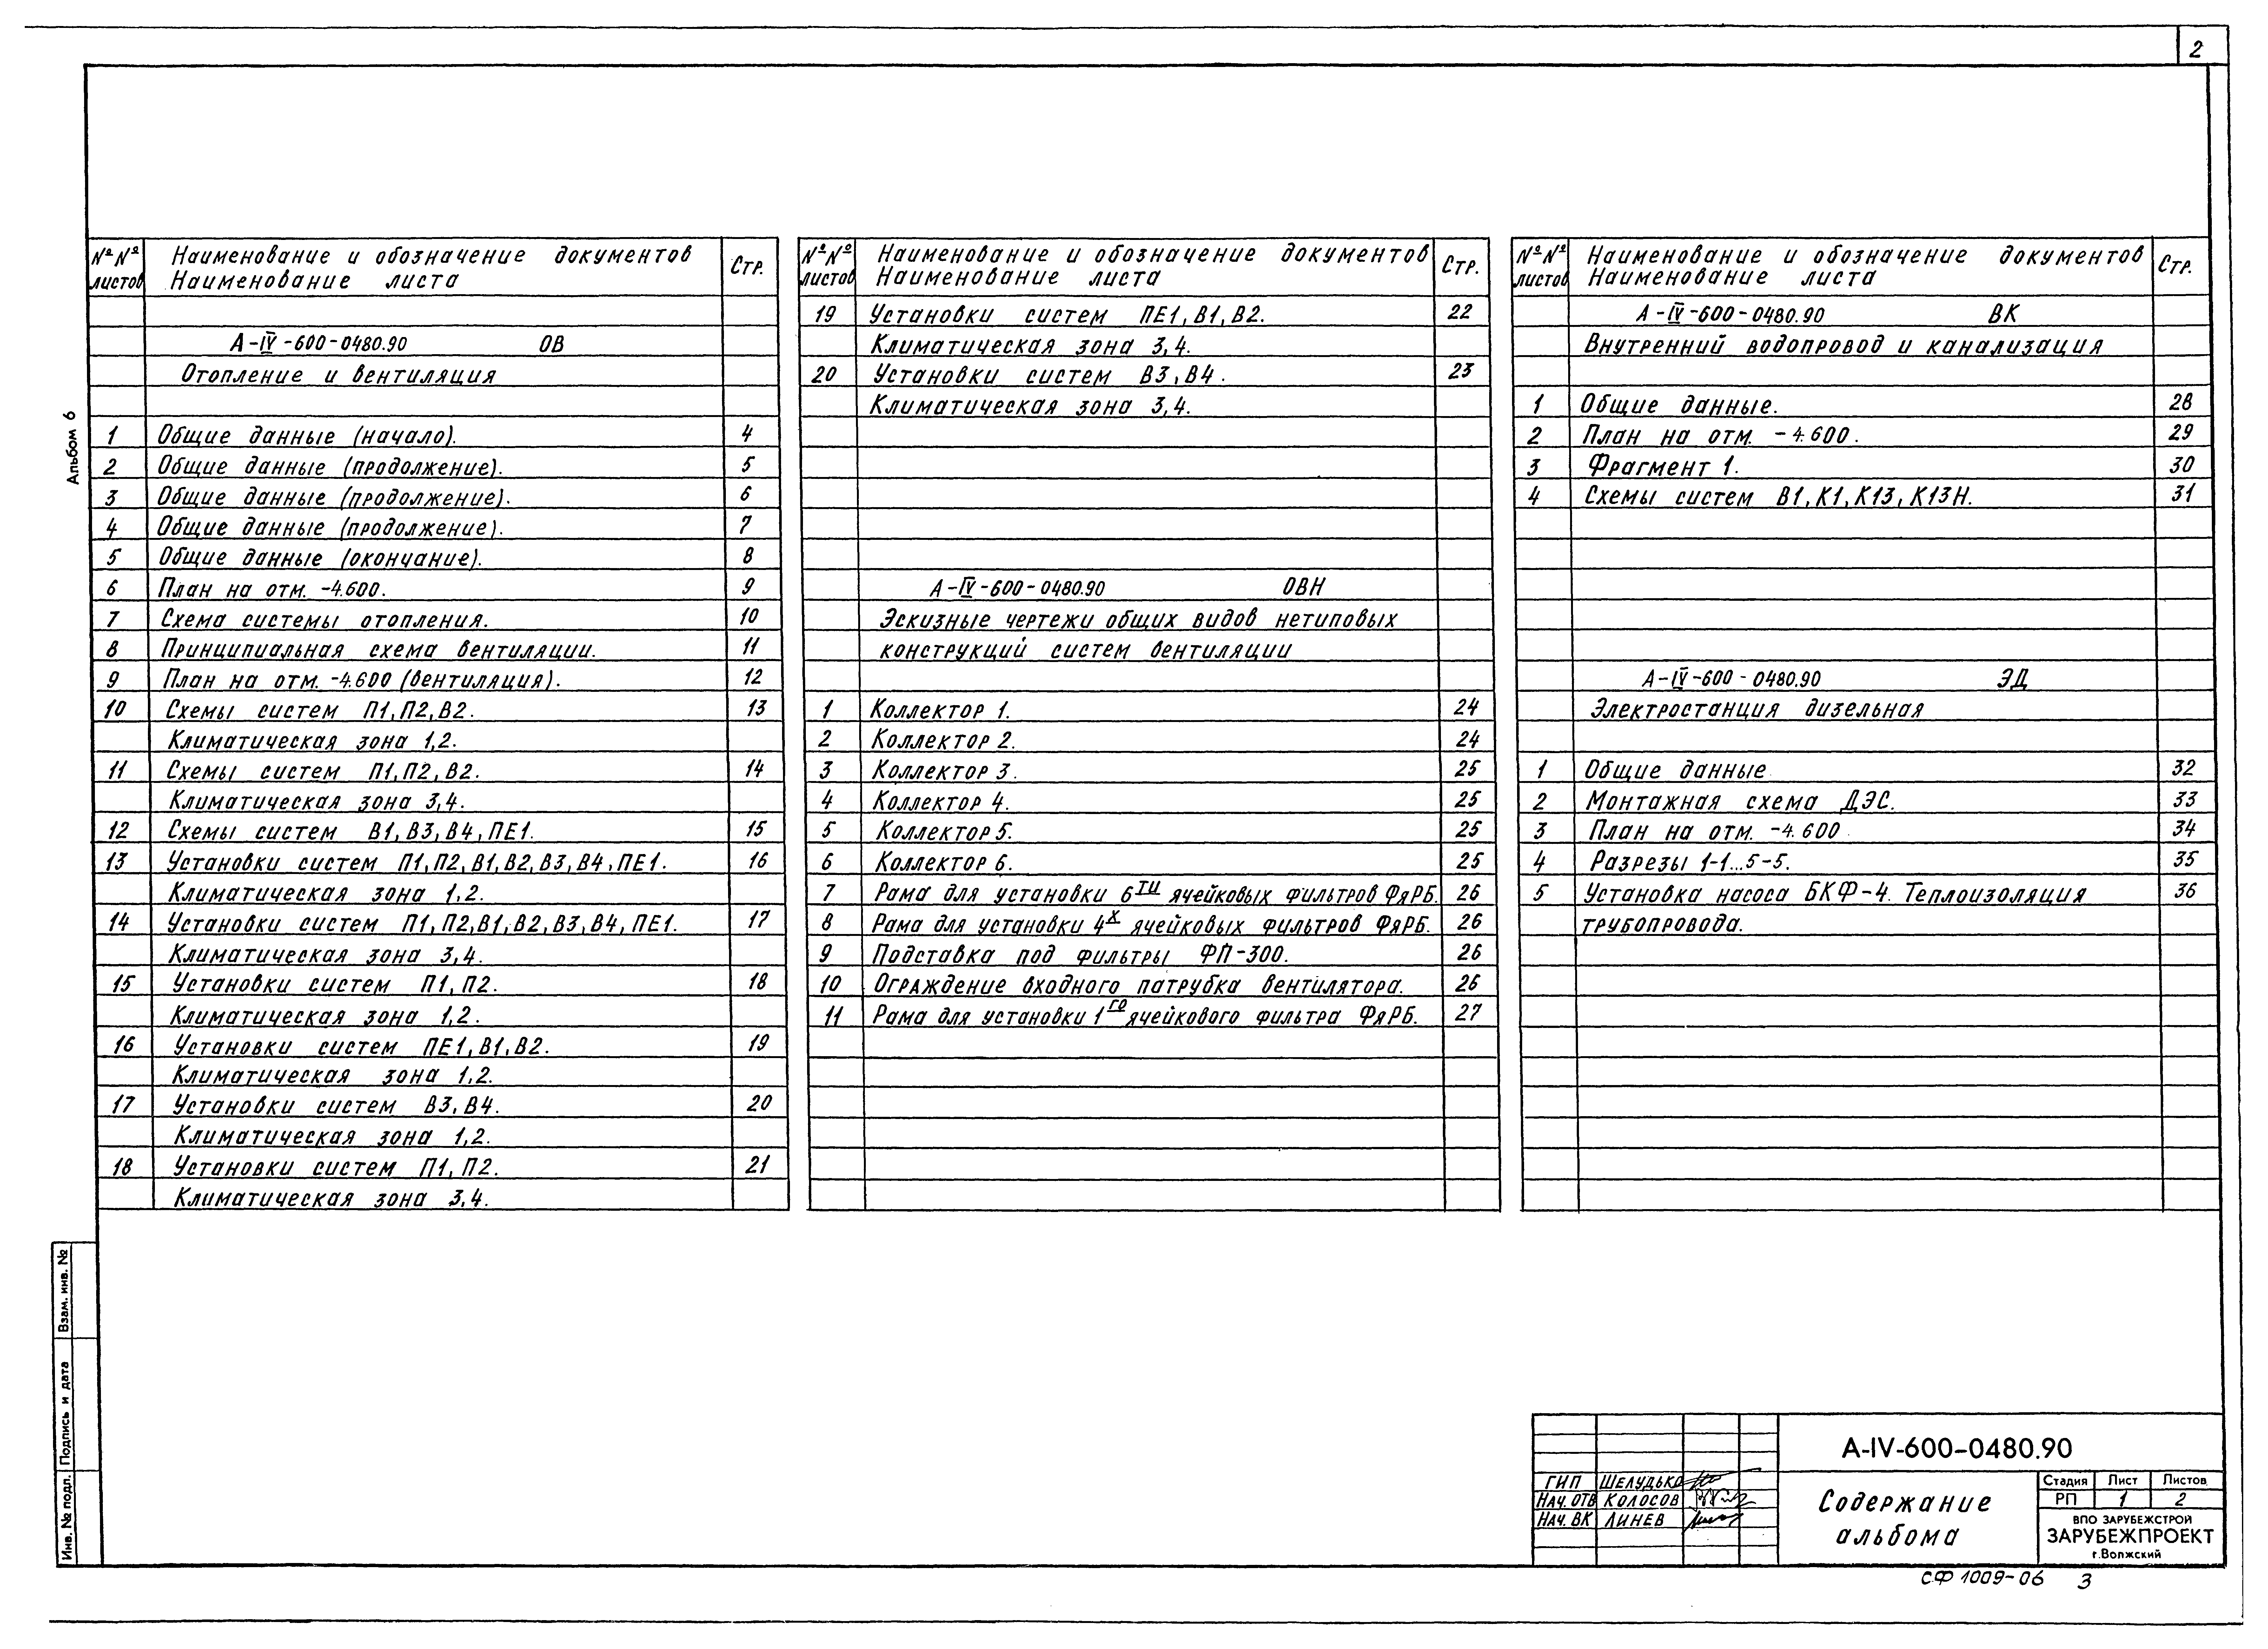 2
Альбом 6
№№ листов
Наименование и обозначение документов
Наименование листа
Стр.
А-IV-600-0480.90 ОВ
Отопление и вентиляция
1 Общие данные (начало). 4
2 Общие данные (продолжение). 5
3 Общие данные (продолжение). 6
4 Общие данные (продолжение). 7
5 Общие данные (окончание). 8
6 План на отм. -4.600. 9
7 Схема системы отопления. 10
8 Принципиальная схема вентиляции. 11
9 План на отм. -4.600 (вентиляция). 12
10 Схемы систем П1, П2, В2. 13
Климатическая зона 1,2.
11 Схемы систем П1, П2, В2. 14
Климатическая зона 3,4.
12 Схемы систем В1, В3, В4, ПЕ1. 15
13 Установки систем П1, П2, В1, В2, В3, В4, ПЕ1. 16
Климатическая зона 1,2.
14 Установки систем П1, П2, В1, В2, В3, В4, ПЕ1. 17
Климатическая зона 3,4.
15 Установки систем П1, П2. 18
Климатическая зона 1,2.
16 Установки систем ПЕ1, В1, В2. 19
Климатическая зона 1,2.
17 Установки систем В3, В4. 20
Климатическая зона 1,2.
18 Установки систем П1, П2. 21
Климатическая зона 3,4.
№№ листов
Наименование и обозначение документов
Наименование листа
Стр.
19 Установки систем ПЕ1, В1, В2. 22
Климатическая зона 3,4.
20 Установки систем В3, В4. 23
Климатическая зона 3,4.
А-IV-600-0480.90 ОВН
Эскизные чертежи общих видов нетиповых
конструкций систем вентиляции
1 Коллектор 1. 24
2 Коллектор 2. 24
3 Коллектор 3. 25
4 Коллектор 4. 25
5 Коллектор 5. 25
6 Коллектор 6. 25
7 Рама для установки 6ти ячейковых фильтров ФяРБ. 26
8 Рама для установки 4х ячейковых фильтров ФяРБ. 26
9 Подставка под фильтры ФП-300. 26
10 Ограждение входного патрубка вентилятора. 26
11 Рама для установки 1го ячейкового фильтра ФяРБ. 27
№№ листов
Наименование и обозначение документов
Наименование листа
Стр.
А-IV-600-0480.90 ВК
Внутренний водопровод и канализация
1 Общие данные. 28
2 План на отм. -4.600. 29
3 Фрагмент 1. 30
4 Схемы систем В1, К1, К13, К13Н. 31
А-IV-600-0480.90 ЭД
Электростанция дизельная
1 Общие данные 32
2 Монтажная схема ДЭС. 33
3 План на отм. -4.600 34
4 Разрезы 1-1...5-5. 35
5 Установка насоса БКФ-4. Теплоизоляция 36
трубопровода.
Взам. инв. №
Подпись и дата
Инв. № подл.
А-IV-600-0480.90
ГИП ШЕЛУДЬКО
НАЧ. ОТВ КОЛОСОВ
НАЧ. ВК ЛИНЕВ
Содержание
альбома
Стадия Лист Листов
РП 1 2
ВПО ЗАРУБЕЖСТРОЙ
ЗАРУБЕЖПРОЕКТ
г.Волжский
СФ 1009-06 3